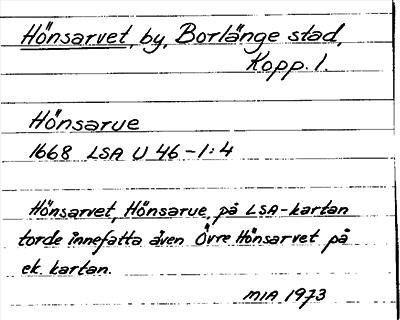 Hönsarvet, by, Borlänge stad,
Kopp. l.
Hönsarue
1668 LSA U 46-1:4
Hönsarvet, Hönsarue, på LSA-kartan
torde innefatta även Övre Hönsarvet på
ek. kartan.
MIA 1973